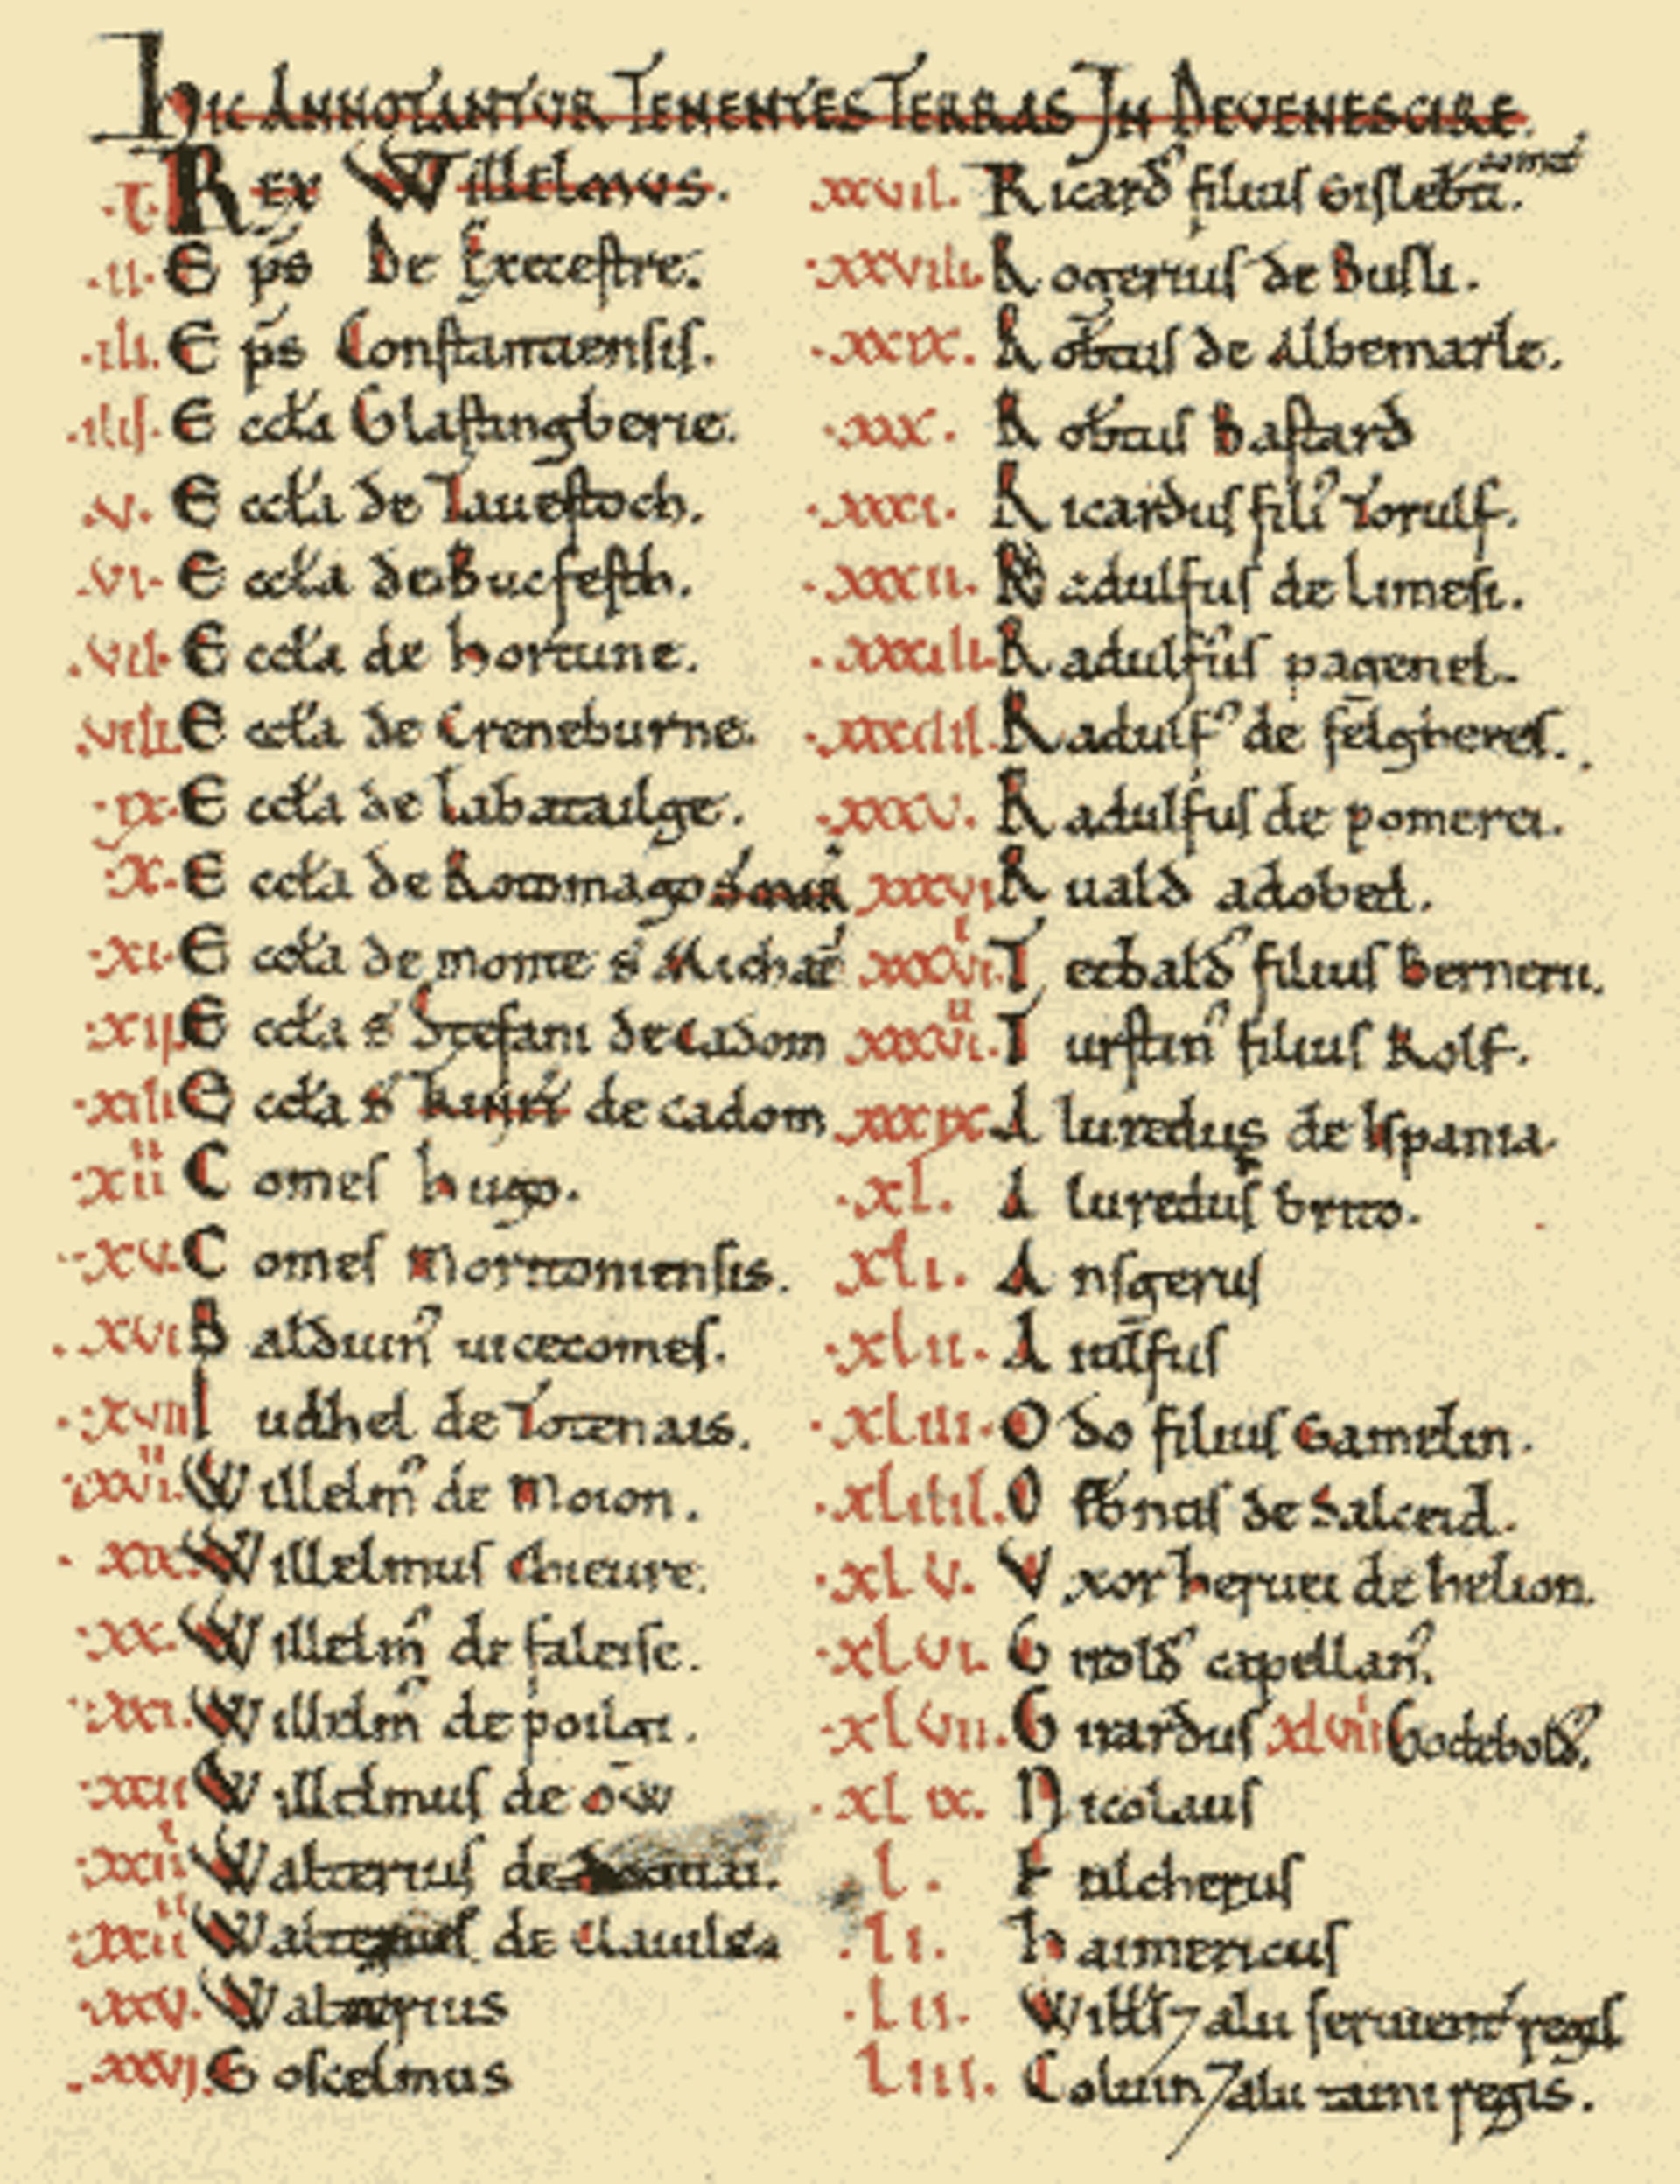 HIC ANNOTANTVR TENENTES TERRAS IN DEVENESCIRE.
.I. REX WILLELMVS.
.II. Eps De Execestre.
.III. Eps Constantiensis.
.IIII. Eccla Glastingberie.
.V. Eccla de Tauestoch.
.VI. Eccla de Bucfesth.
.VII. Eccla de hortune.
.VIII. Eccla de Creneburne.
.IX. Eccla de Labatailge.
.X. Eccla de Rotomago S MAR
.XI. Eccla de monte S Michael
.XII. Eccla S Stefani de Cadom
.XIII. Eccla S de cadom
.XIIII. Comes hugo.
.XV. Comes Moritoniensis.
.XVI. Balduin uicecomes.
.XVII. Iudhel de Totenais.
.XVIII. Willelm de Moion.
.XIX. Willelmus Chieure.
.XX. Willelm de faleise.
.XXI. Willelm de poilgi.
.XXII. Willelmus de ow
.XXIII. Walterius de
.XXIIII. Walterius de Clauile
.XXV. Walterius
.XXVI. Goscelmus
.XXVII. Ricard filius Gislebti. comit
.XXVIII. Rogerius de Busli.
.XXIX. Robtus de Albemarle.
.XXX. Robtus Bastard
.XXXI. Ricardus fili Torulf.
.XXXII. Radulfus de Limesi.
.XXXIII. Radulfus pagenel.
.XXXIIII. Radulf de felgheres.
.XXXV. Radulfus de pomerei.
.XXXVI. Ruald adobed.
.XXXVII. Tetbald filius Bernerii.
.XXXVIII. Turstin filius Rolf.
.XXXIX. Aluredus de Ispania.
.XL. Aluredus brito.
.XLI. Ansgerus
.XLII. Aiulfus
.XLIII. Odo filius Gamelin.
.XLIIII. Osbnus de Salceid.
.XLV. Vxor heruei de helion.
.XLVI. Girold capellan.
.XLVII. Girardus XLVIII Godebold.
.XLIX. Nicolaus
.L. Fulcherus
.LI. haimericus
.LII. Wills 7 alii seruient regis
.LIII. Coluin 7 alii taini regis.